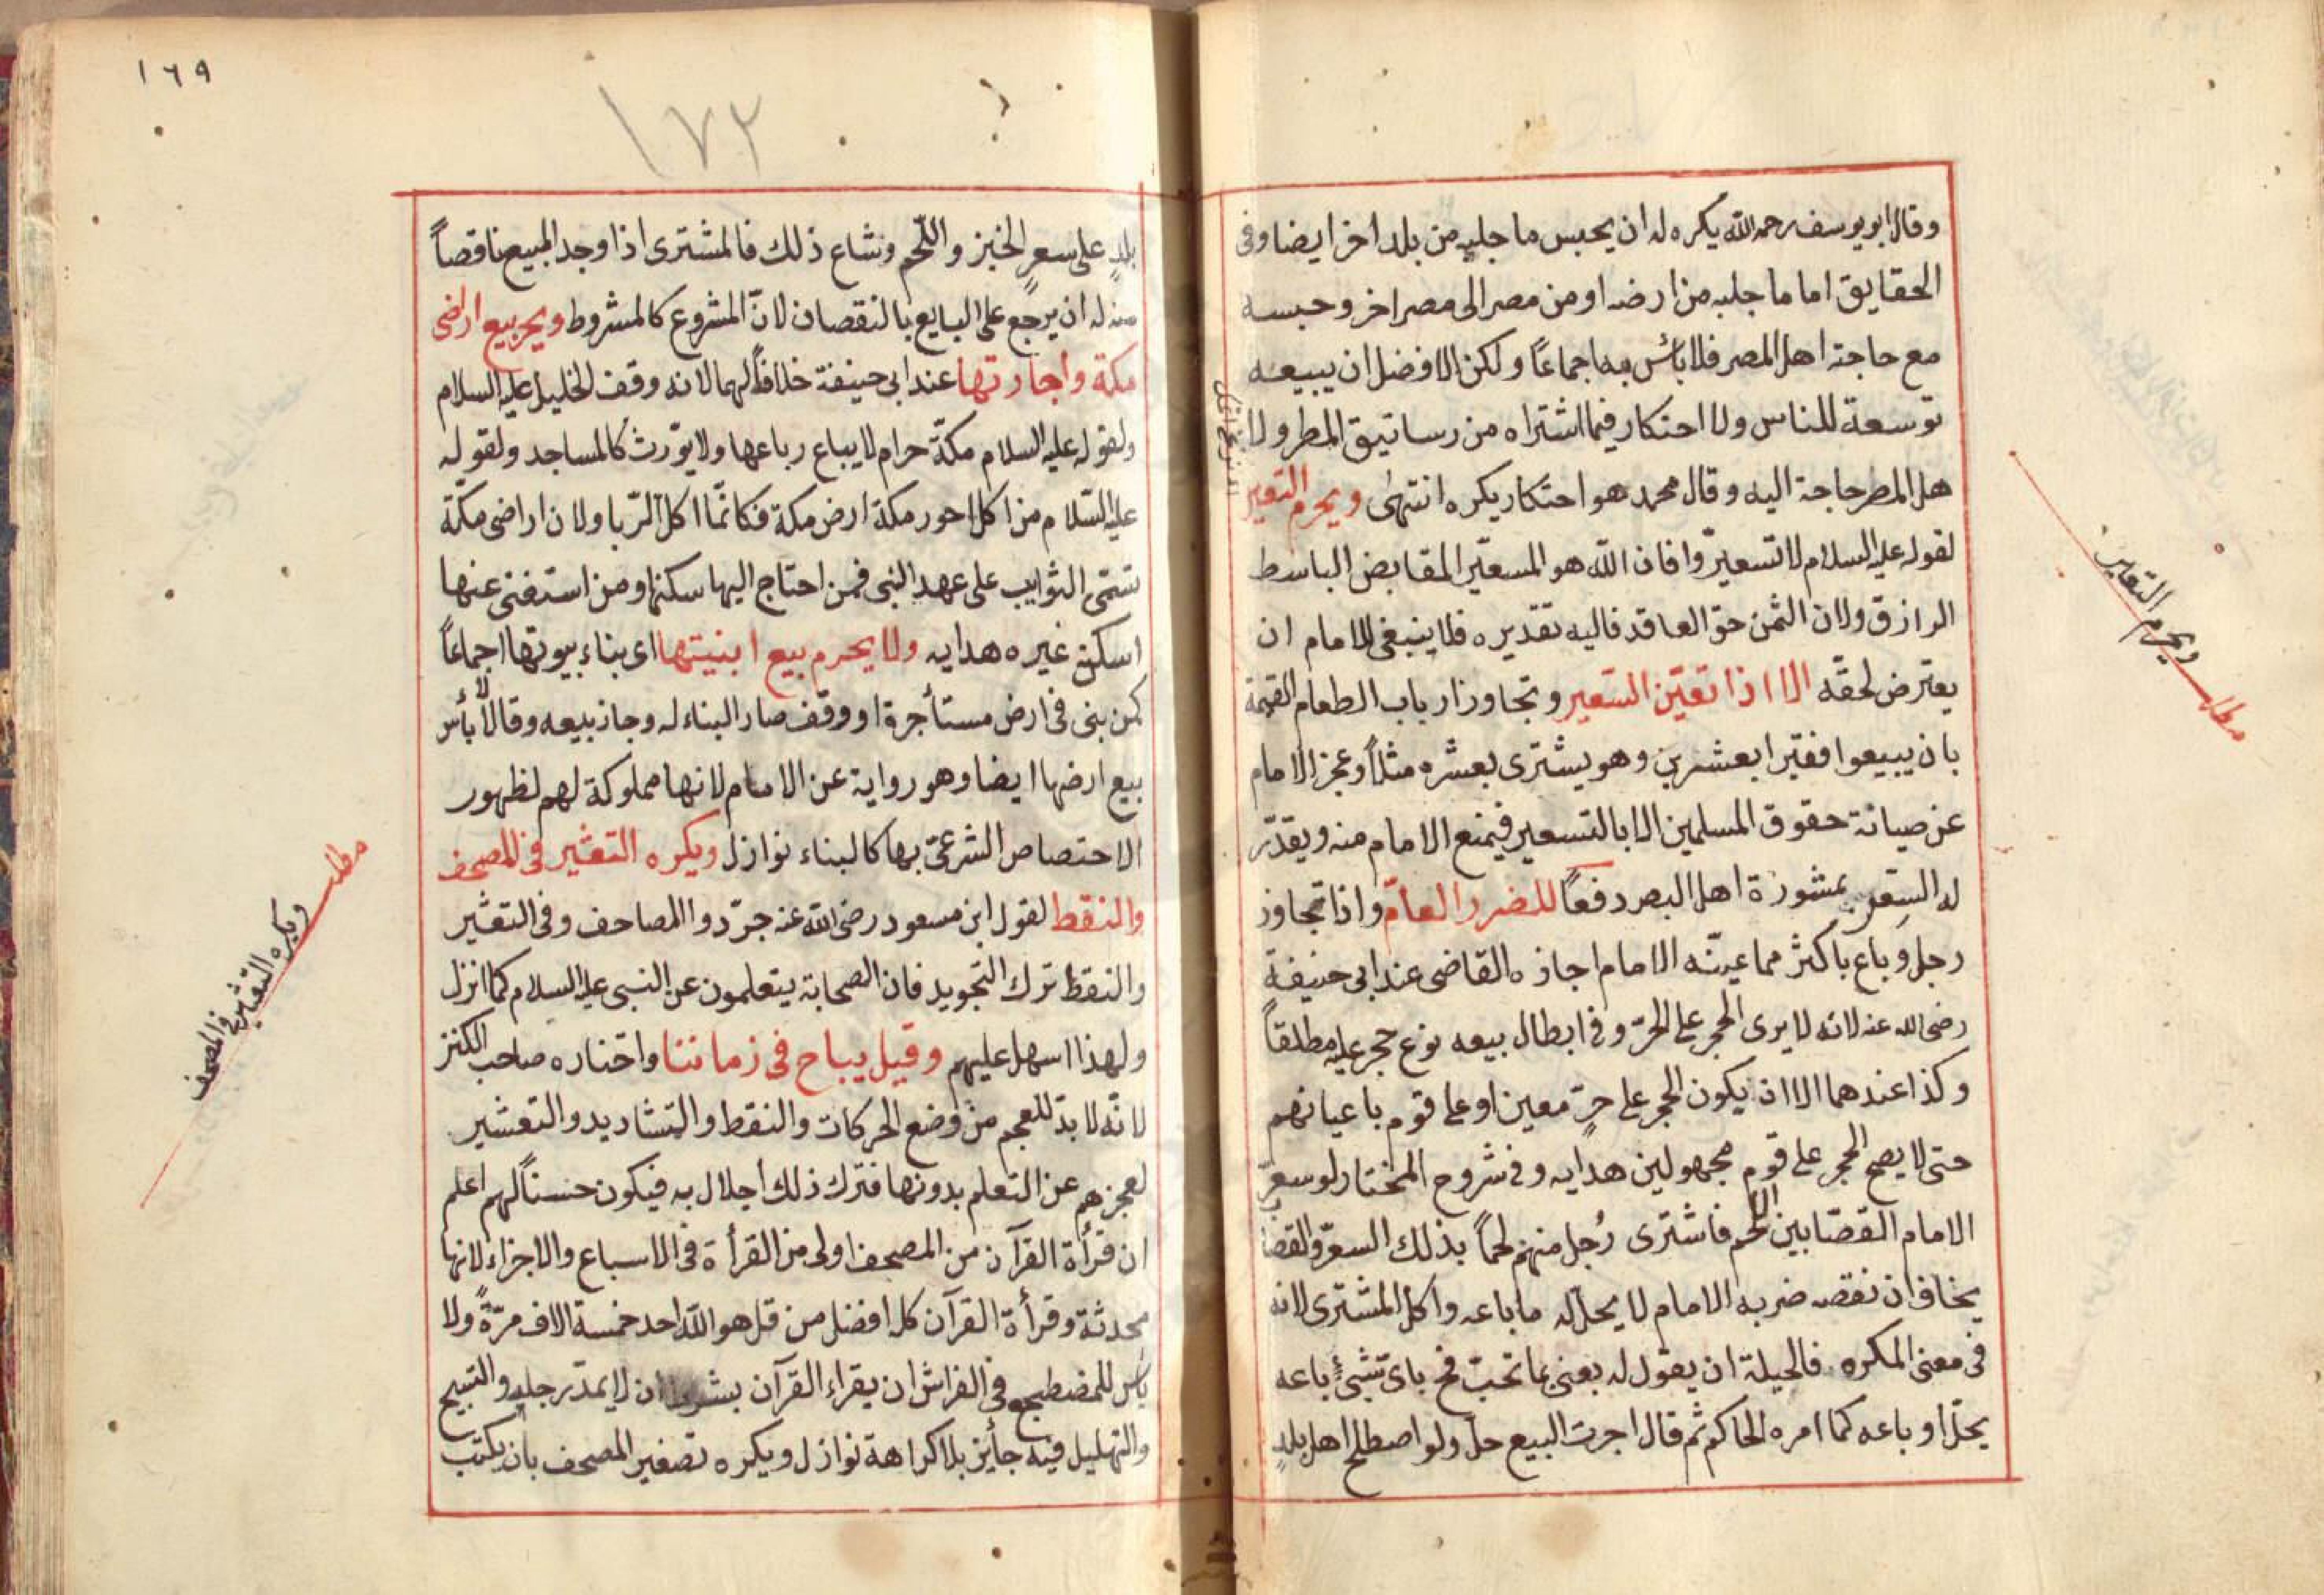 وقال ابو يوسف رحمه الله يكره له ان يحبس ما جلبه من بلد اخر ايضا وفى
الحقايق اما ما جلبه من ارضه او من مصر الى مصر اخر وحبسه
مع حاجة اهل المصر فلا بائس به اجماعاً ولكن الافضل ان يبيعه
توسعة للناس ولا احتكار فيما اشتراه من رساتيق المطر ولا
هل المطر حاجة اليه وقال محمد هو احتكار يكره انتهى ويحرم التعير
لقوله عليه السلام لا تسعيرّوا فان الله هو المسعّير المقابض الباسط
الرازق ولان الثمن حق العاقد فاليه تقديره فلا ينبغى للامام ان
يعترض لحقّه الا اذا تعيّن التسعير وتجاوز ارباب الطعام القيمة
بان يبيعوا قفيّرا بعشرين وهو يشترى بعشره مثلاً وعجز الامام
عن صيانة حقوق المسلمين الا بالتسعير فيمنع الامام منه ويقدّر
له السِعر بمشورة اهل البصر دفعاً للضرر العامّ واذا تجاوز
رجل وباع باكثر مما عيّنه الامام اجازه القاضى عند ابى حنيفة
رضى الله عنه لانه لا يرى الحجر على الحرّ وفى ابطال بيعه نوع حجر عليه مطلقاً
وكذا عندهما الا ان يكون الحجر على حرّ معين او على قوم باعيانهم
حتى لا يصح الحجر على قوم مجهولين هدايه وفى شروح المختار لو سعرّ
الامام القصّابين اللحم فاشترى رُجل منهم لحماً بذلك السعرّ والقصاب
يخاف ان نقصه ضربه الامام لا يحلّ له ما باعه واكل المشترى لانه
فى معنى المكره فالحيلة ان يقول له بعنى بما تحبّ فح باىّ شئٍ باعه
يحلّ او باعه كما امره الحاكم ثم قال اجرت البيع حلّ ولو اصطلح اهل بلدٍ
ويحرم التعاير
مطلب
١٦٩
١٧٢
بلدٍ على سعرٍ الخبز واللّحم وشاع ذلك فالمشترى اذا وجد المبيع ناقصاً
منه له ان يرجع على البايع بالنقصان لانّ المشروع كالمشروط ويحر بيع اراضى
مكة واجارتها عند ابى حنيفة خلافاً لهما لانه وقف الخليل عليه السلام
ولقوله عليه السلام مكّة حرام لا يباع رباعها ولا يوّرث كالمساجد ولقوله
عليه السّلام من اكل احور مكة ارض مكة فكانمّا اكل الرّبا ولان اراضى مكّة
تسمّى الثوايب على عهد النبى فمن احتاج اليها سكنها ومن استغنى عنها
اسكن غيره هدايه ولا يحرم بيع ابنيتها اى بناء بيوتها اجماعاً
كمن بنى فى ارض مستأجرة او ووقف صار البناء له وجاز بيعه وقالا لا بأس
بيع ارضها ايضا وهو رواية عن الامام لانها مملوكة لهم لظهور
الاختصاص الشرعىّ بها كالبناء نوازل ويكره التعثير فى المصحف
والنقط لقول ابن مسعود رضى الله عنه جرّدوا المصاحف وفى التعثير
والنقط ترك التجويد فان الصحابة يتعلمون عن النبى عليه السلام كما انزل
ولهذا اسهل عليهم وقيل يباح فى زماننا واختاره صاحب الكنز
لانّه لا بدّ للعجم من وضع الحركات والنقط والتشاديد والتعشير
لعجزهم عن التعلم بدونها فترك ذلك اجلال به فيكون حسناً لهم اعلم
ان قرأة القرآن من المصحف اولى من القرأة فى الاسباع والاجزاء لانها
محدثة وقرأة القرآن كله افضل من قل هو الله احد خمسة الاف مرّةً ولا
باس للمضطجع فى الفراش ان يقراء القرآن بشرط ان لا يمدّ رجليه والتسبيح
والتهليل فيه جايز بلا كراهة نوازل ويكره تصغير المصحف بان يكتب
مطلب
ويكره التعاثير فى المصحف